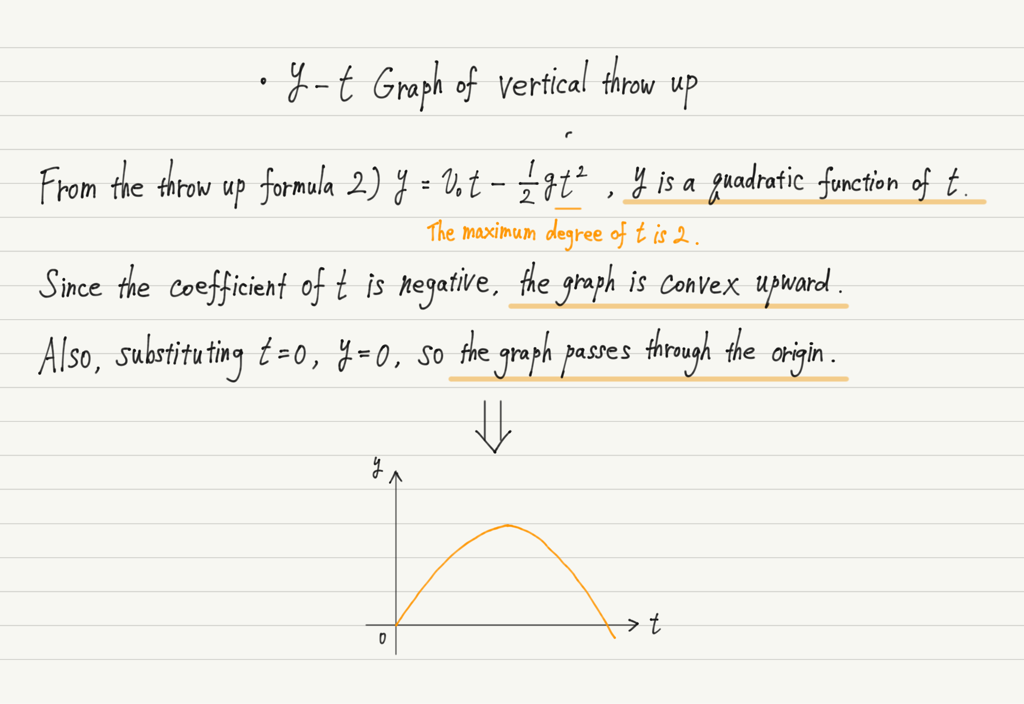 · y-t Graph of vertical throw up
From the throw up formula 2) y = v₀t - 1/2 gt², y is a quadratic function of t.
The maximum degree of t is 2.
Since the coefficient of t is negative, the graph is convex upward.
Also, substituting t=0, y=0, so the graph passes through the origin.
y
0
t